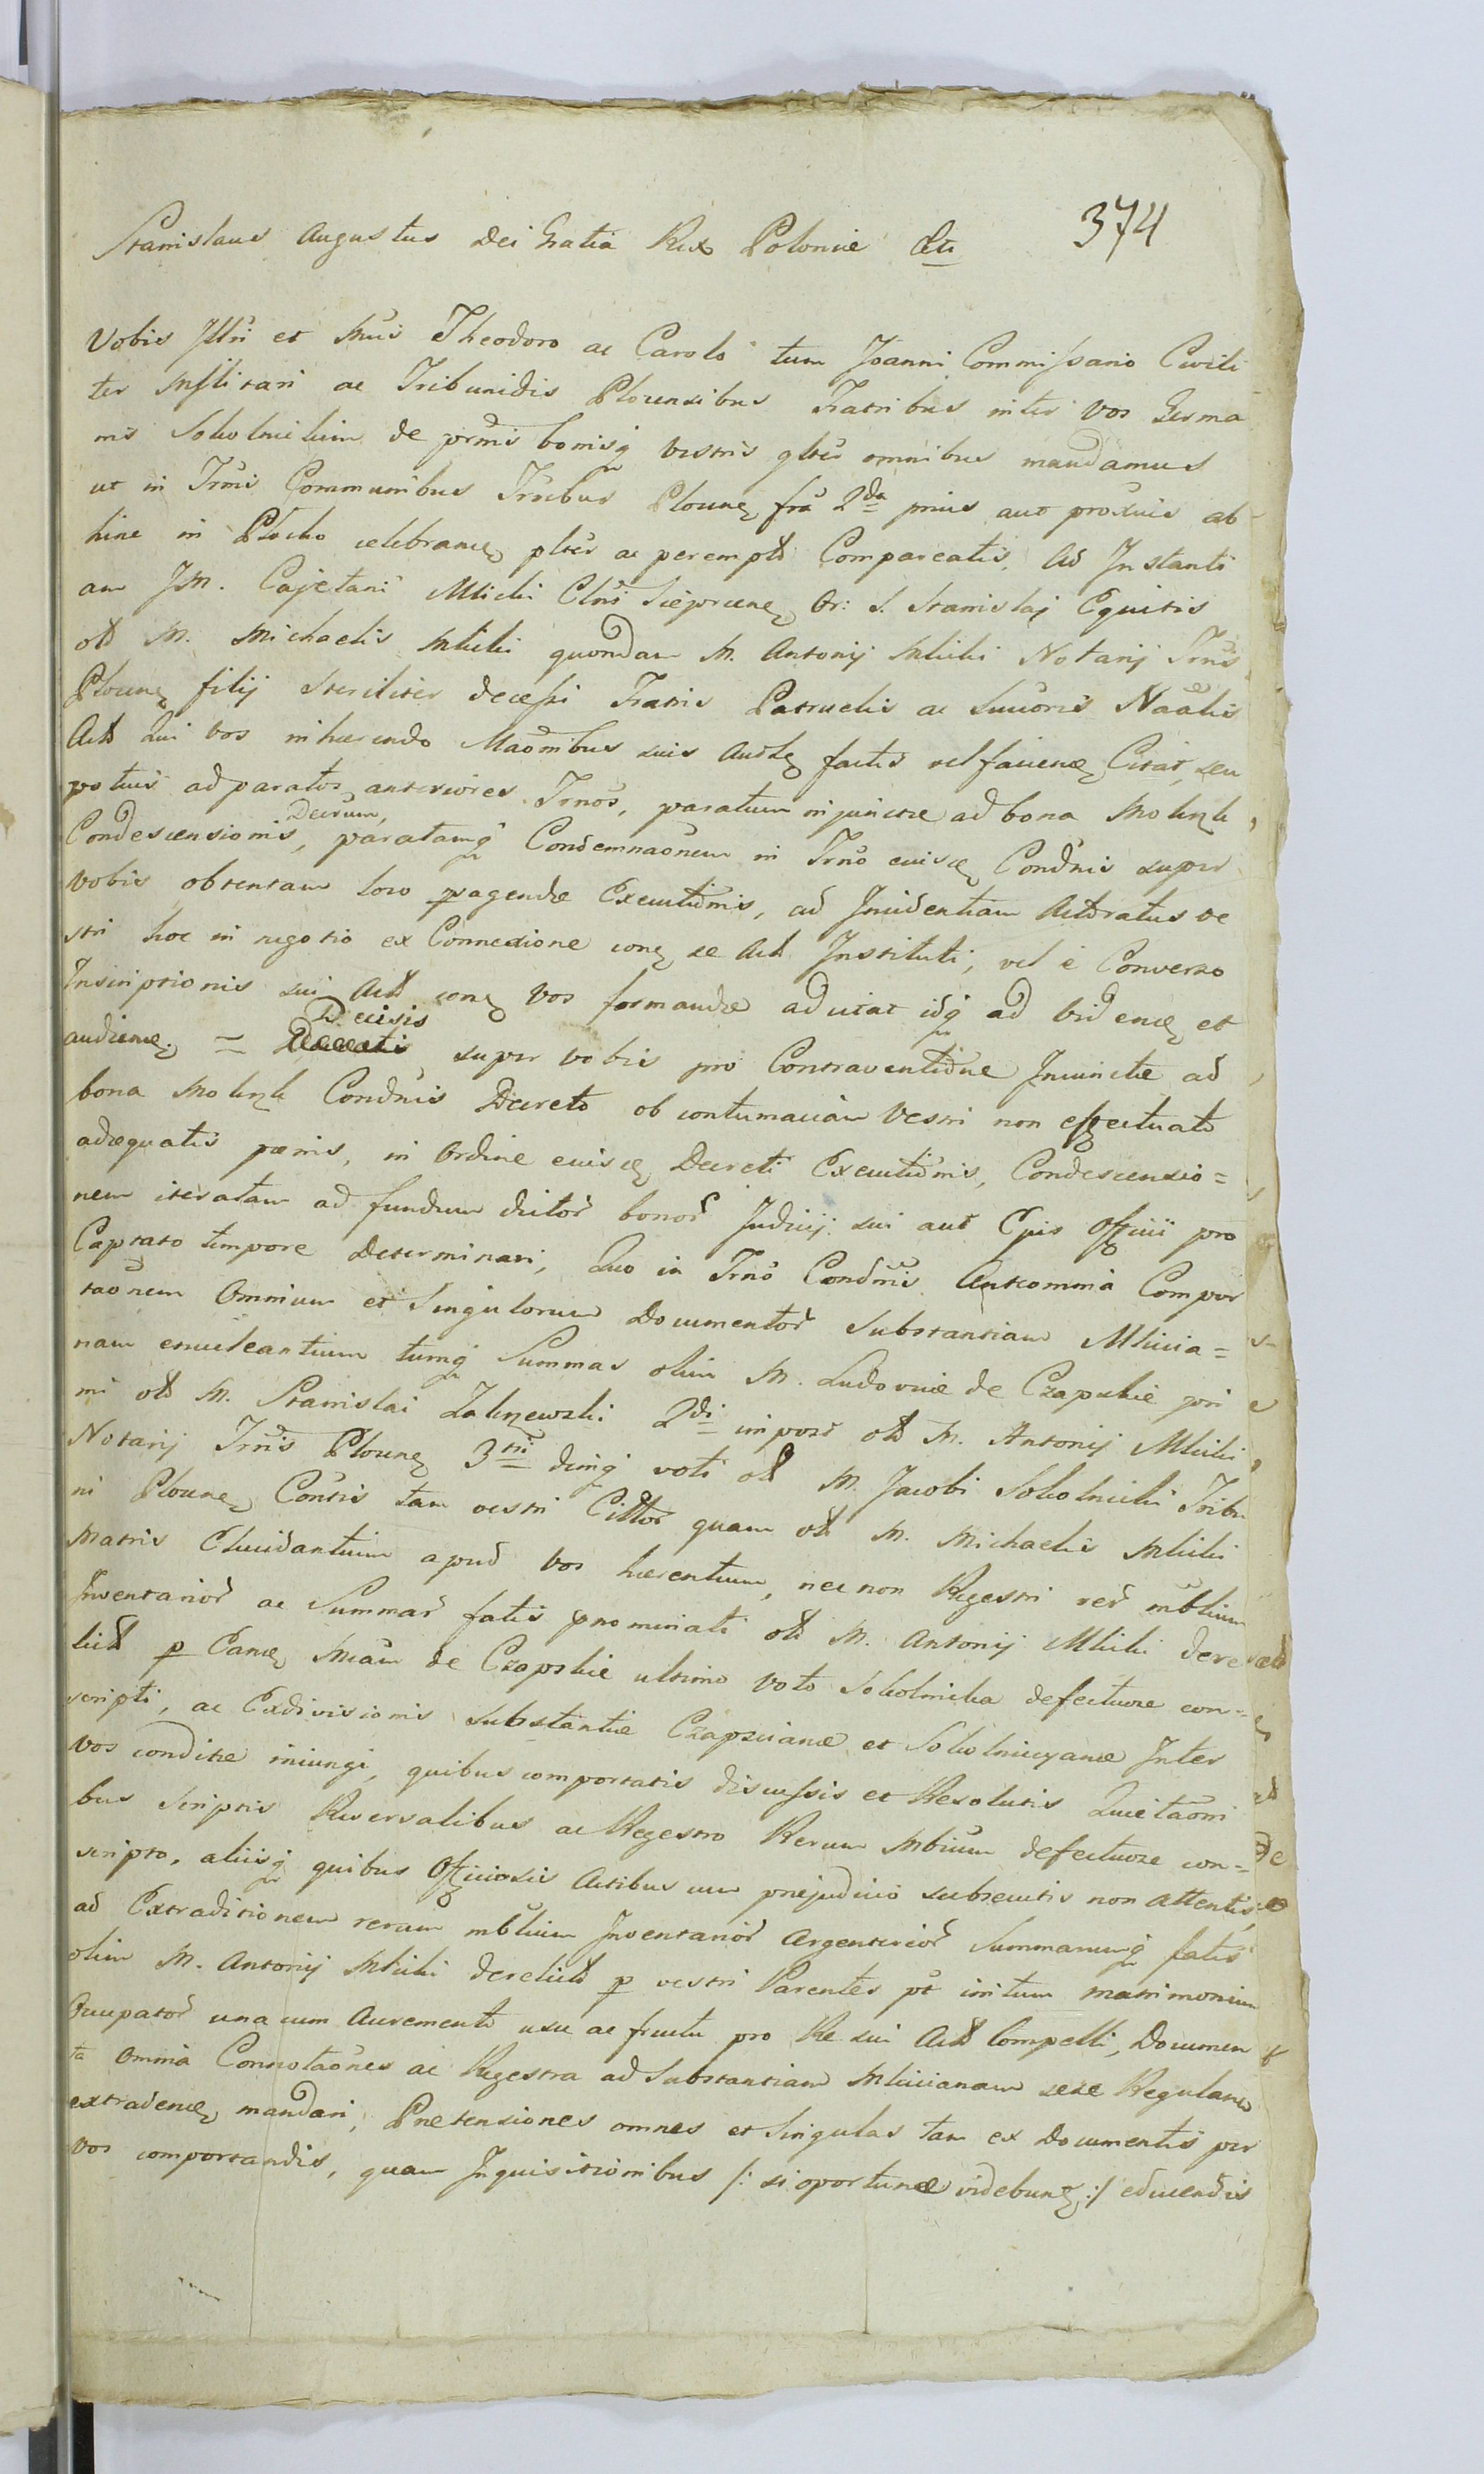 374
Stanislaus Augustus Dei Gratia Rex Poloniæ Etc
Vobis Illri et Mcis Theodoro ac Carolo tum Joanni Commissario Civili
ter Militari ac Tribunidis Plocensibus Fratribus inter vos Germa
nis Sokolnickim de prmis bonisq vestris gltr omnibus mandamus
ut in Trmis Communibus Trribus Plocen fra 2da prius aut proxmis ab
hinc in Plocko celebrand pltr ac peremptt Compareatis, Ad Instanti
am JM. Cajetani Mlicki Clni Sieprcen Or: S. Stanislaj Equitis
olt M. Michaelis Mlicki quondam M. Antonij Mlicki Notarij Trris
Plocen filij Steriliter decessi Fratris Patruelis ac Succoris Naalis
Actt Qui vos inhærendo Maonibus suis factis vel faciend Citat, seu
potius ad paratos anteriores Trnos, paratum injunctæ ad bona Mokrzk
Condescensionis, Decrum, paratamq Condemnaonem in Trno euisd Condnis super
vobis obtentam loco pagendæ Executionis, ad Incidentiam Actoratus ve
stri hoc in negotio ex Connexione con se Actt Instituti, vel è Converso
Inscriptionis sui Actt con vos formandæ adcitat idq ad vidend et
audiend. = Decisis super vobis pro Contraventione Iniunctæ ad
bona Mokrzk Condnis Decreto ob contumaciam Vestri non effectuato
adæquatis pænis, in Ordine euisd Decreti Executionis, Condescensio=
nem iteratam ad fundum dictor bonor Judicij sui aut Cpis Officii pro
Captato tempore Determinari, Quo in Trno Condnis Anteomnia Compor
taonem Omnium et Singulorum Documentor Substantiam Mlicia=
nam enucleantium tumq Summas olim M. Ludovicæ de Czapskie pri
mi olt M. Stanislai Zakrzewski 2di impost olt M. Antonij Mlicki
Notarij Trris Plocen 3tii dumq voti olt M. Jacobi Sokolnicki Tribu
ni Plocen Contis tam vestri Cittor quam olt M. Michaelis Mlicki
Matris Elucidantium apud vos hærentium, nec non Regestri rer mblium
Inventarior ac Summar fatis prnominati olt M. Antonij Mlicki dere
lict p Eand Mcam de Czapskie ultimo Voto Sokolnicka defectuose con=
scripti, ac Exdivisionis Substantiæ Czapscianæ et Sokolnicyanæ Inter
vos conditæ iniungi, quibus comportatis discussis et Resolutis Quietaoni
bus Scriptis Reversalibus ac Regestro Rerum Mbium defectuose con=
scripto, aliisq quibus Officiosis Actibus cum præjudicio subsecutis non attentis,
ad Extraditionem rerum mblium Inventarior Argenterior Summarumq fatis
olim M. Antonij Mlicki derelict p vestri Parentes pt initum matrimonium
Occupator una cum Accremento usu ac fructu pro Re sui Actt Compelli, Documen
ta omnia Connotaones ac Regestra ad Substantiam Mlicianam sese Regulan
extradend mandari, Prætensiones omnes et Singulas tam ex Documentis per
vos comportandis, quam Inquisitionibus /: si oportunæ videbunt :/ educendis